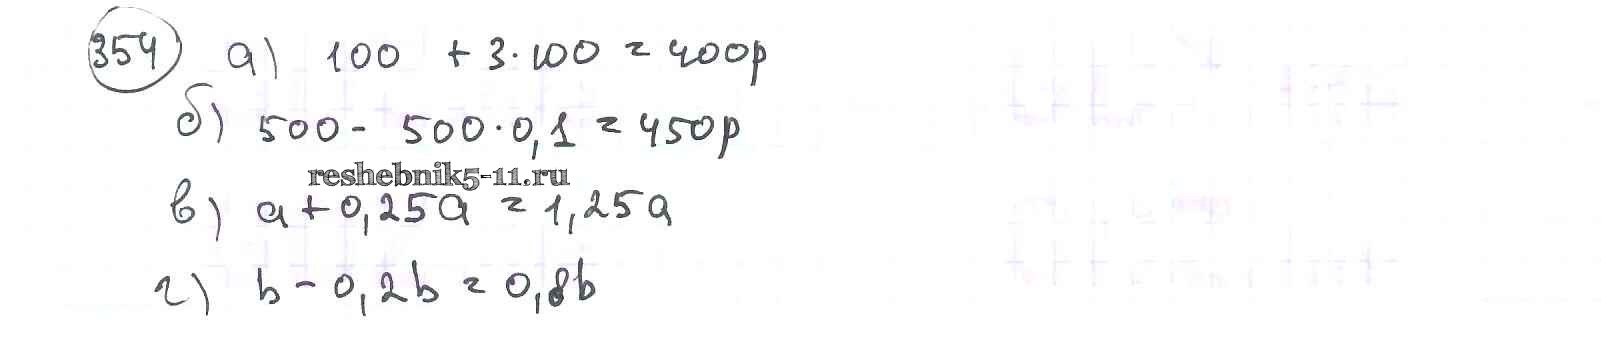 354 а) 100 + 3·100 = 400р
б) 500 - 500·0,1 = 450р
reshebnik5-11.ru
в) a + 0,25a = 1,25a
г) b - 0,2b = 0,8b